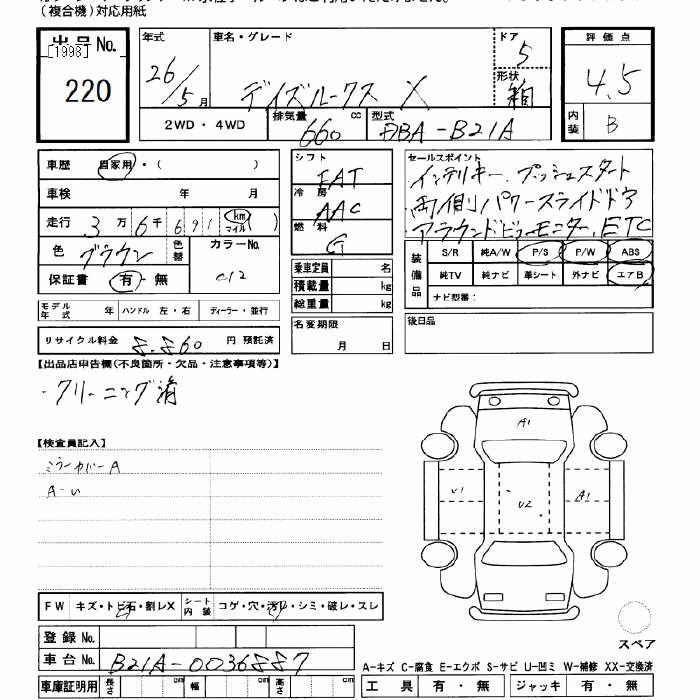 (複合機)対応用紙
出品No.
[1998]
220
年式
26/5月
車名・グレード
デイズルークス X
ドア
5
形状
箱
評価点
4.5
内装
B
2WD・4WD
排気量
660 cc
型式
DBA-B21A
車歴 自家用・( )
車検 年 月
走行 3万6千691 km マイル ( )
色 ブラウン
色替
カラーNo.
C12
保証書 有・無
モデル年式 年 ハンドル 左・右 ディーラー・並行
リサイクル料金 8,860 円 預託済
シフト
FAT
冷房
AAC
燃料
G
乗車定員 名
積載量 kg
総重量 kg
名変期限
月 日
セールスポイント
インテリキー、プッシュスタート
両側パワースライドドア
アラウンドビューモニター、ETC
装備品
S/R 純A/W P/S P/W ABS
純TV 純ナビ 革シート 外ナビ エアB
ナビ型番:
後日品
【出品店申告欄(不良箇所・欠品・注意事項等)】
・クリーニング済
【検査員記入】
ミラーカバーA
A-U
A1
U1
U2
A1
スペア
FW キズ・トビ石・割レX
シート内装 コゲ・穴・汚レ・シミ・破レ・スレ
登録No.
車台No. B21A-0036887
車庫証明用 長さ cm 幅 cm 高さ cm
A-キズ C-腐食 E-エクボ S-サビ U-凹ミ W-補修 XX-交換済
工具 有・無 ジャッキ 有・無